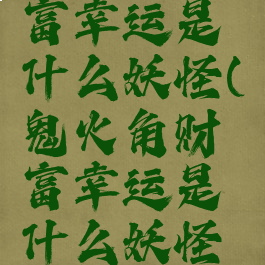 富幸运是
什么妖怪(
鬼火角财
富幸运是
什么妖怪